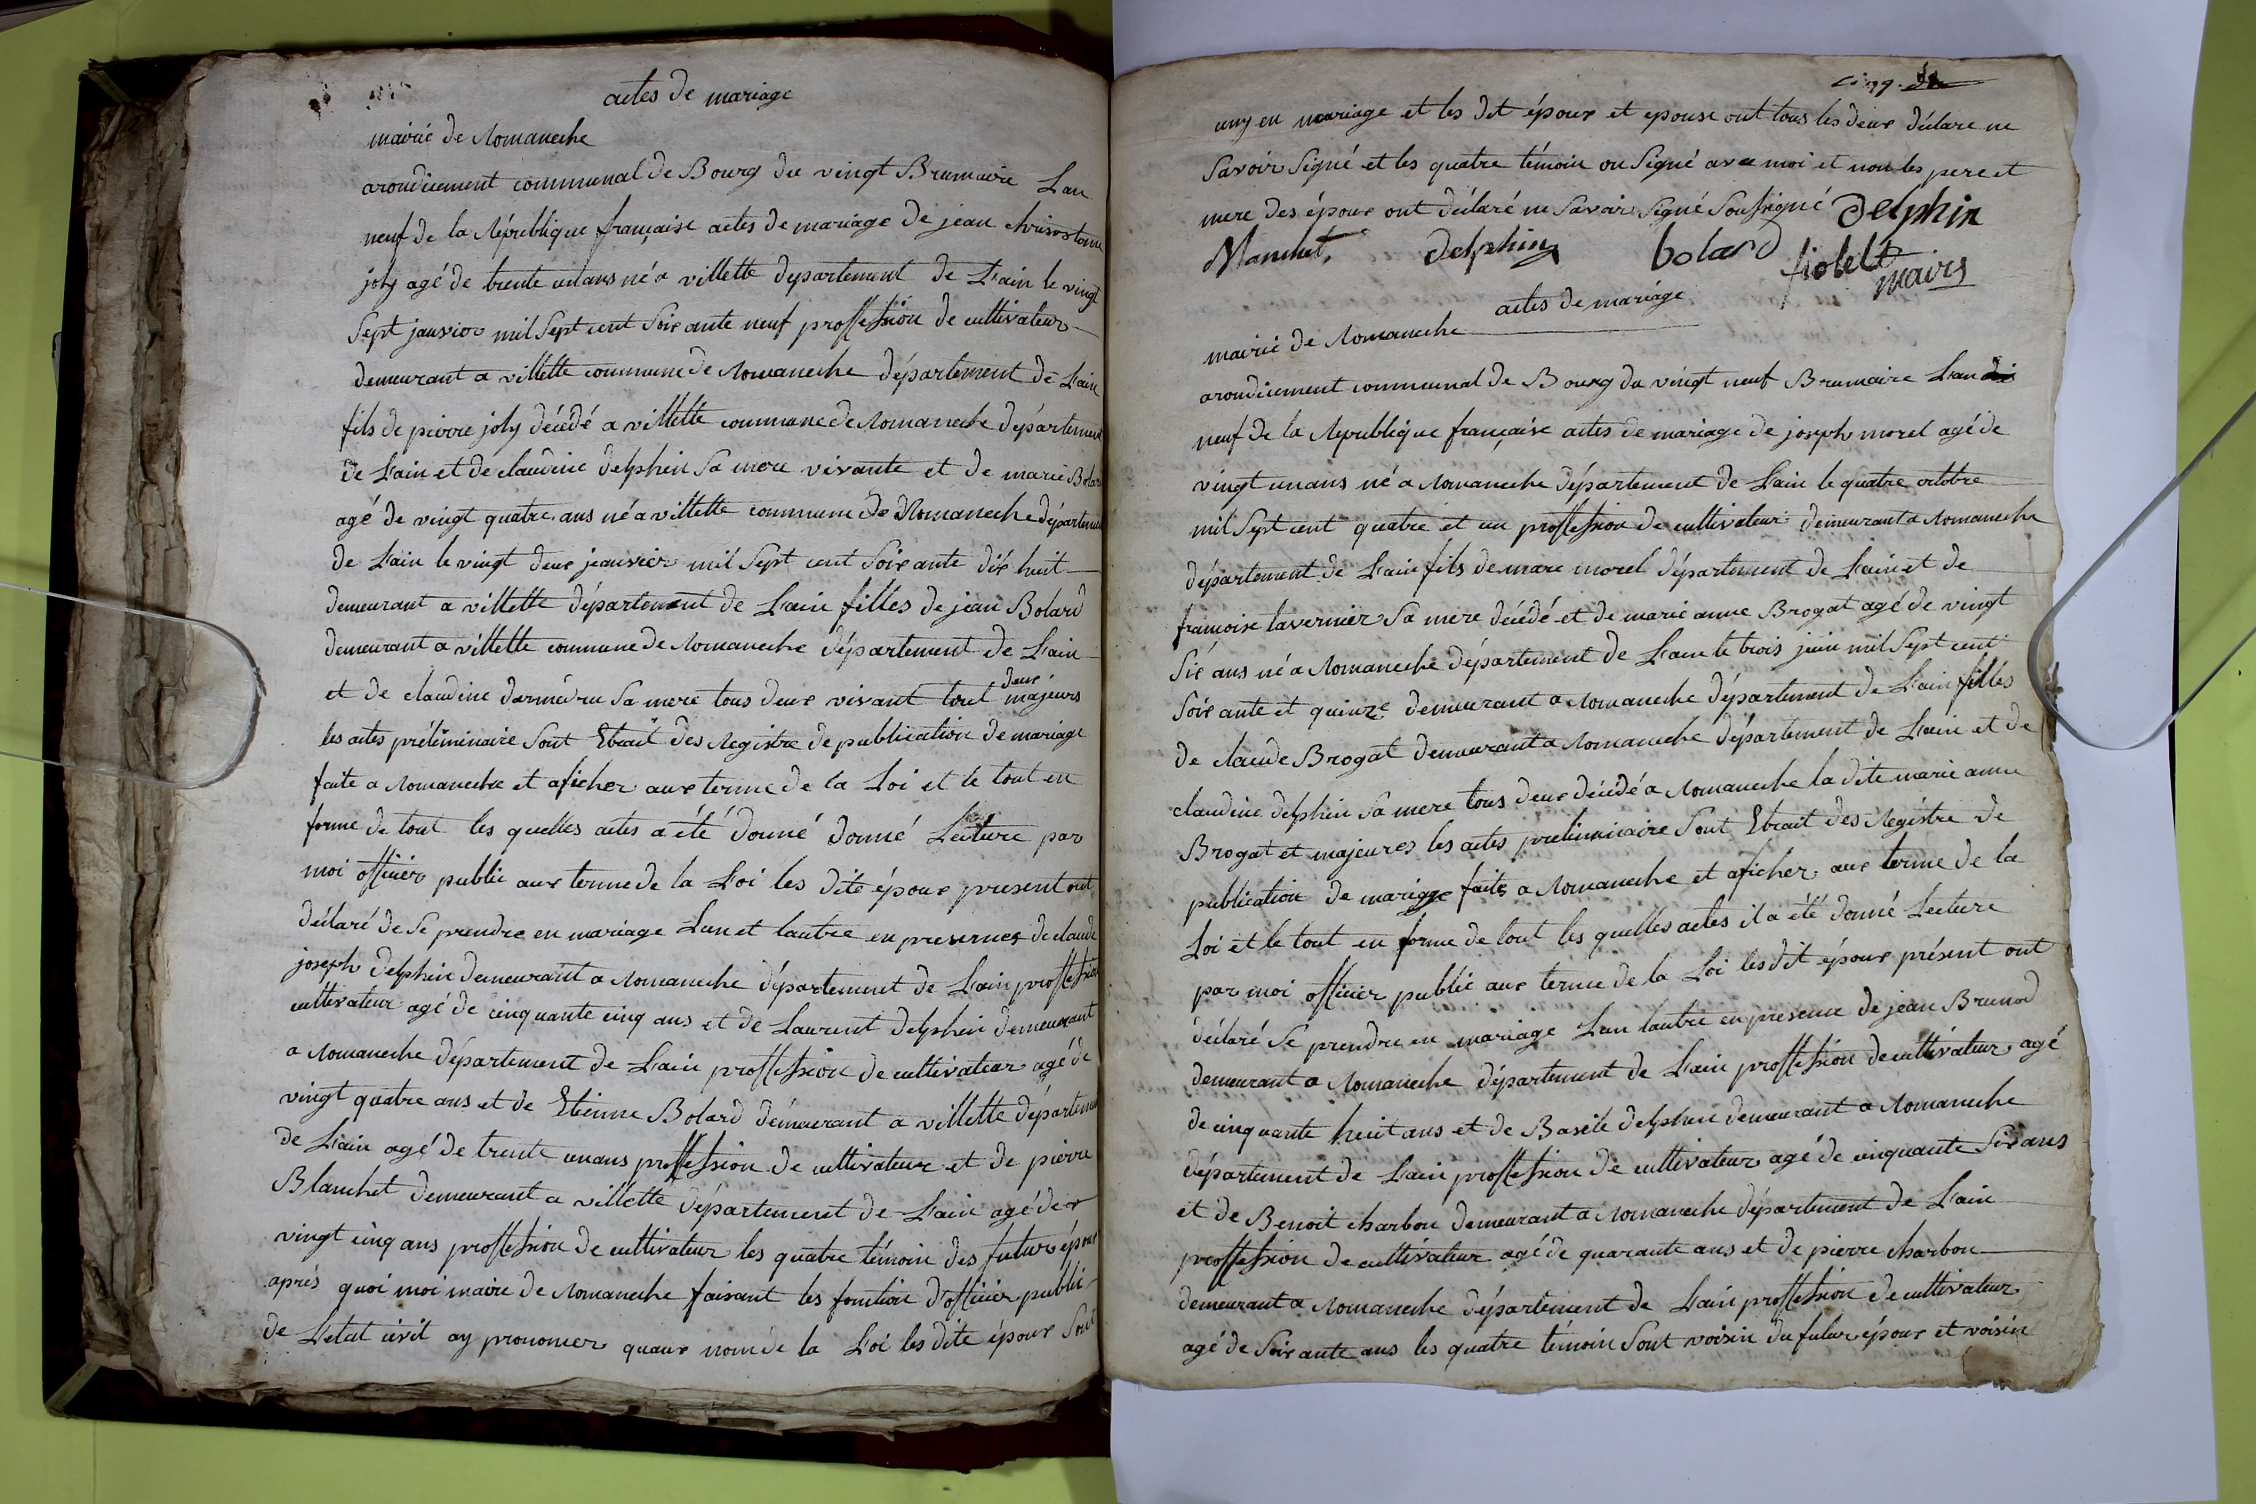 actes de mariage
mairie de Romaneche
arondicement communal de Bourg du vingt Brumaire Lan
neuf de la République française actes de mariage de jean chrisostome
joly agé de trente un ans né a villette departement de Lain le vingt
Sept janvier mil Sept cent Soixante neuf proffession de cultivateur
demeurant a villette commune de Romaneche département de Lain
fils de pierre joly décédé a villette commune de Romaneche département
de Lain et de claudine delphin Sa mere vivante et de marie Bolard
agé de vingt quatre ans né a villette commune de Romaneche département
de Lain le vingt deux jeanvier mil Sept cent Soixante dix huit
demeurant a villette département de Lain filles de jean Bolard
demeurant a villette commune de Romaneche département de Lain
et de claudine Sa mere tous deux vivant tout deux majeurs
les actes préléminaire Sont Etrait des Registre de publication de mariage
faite a Romaneche et aficher aux terme de la Loi et le tout en
forme de tout les quelles actes a été donné donné Lecture par
moi officier public aux terme de la Loi les dite époux present ont
déclaré de Se prendre en mariage Lun et lautre en presences de claude
joseph delphin demeurant a Romaneche département de Lain proffession
cultivateur agé de cinquante cinq ans et de Laurent delphin demeurant
a Romaneche département de Lain proffession de cultivateur agé de
vingt quatre ans et de Etienne Bolard demeurant a villette département
de Lain agé de trente un ans proffession de cultivateur et de pierre
Blanchet demeurant a villette département de Lain agé de
vingt cinq ans proffession de cultivateur les quatre témoin des futur époux
aprés quoi moi maire de Romaneche faisant les fonction d'officier public
de Letat civil ay prononcer quaux nom de la Loi les dite époux Sont
cinq.
uny en mariage et les dit époux et epouse ont tous les deux déclare ne
Savoir Signé et les quatre témoin on Signé avec moi et non les pere et
mere des époux ont déclaré ne Savoir Signé Soussigné Delphin
Blanchet delphin bolard fiolet
maire
actes de mariage
mairie de Romaneche
arondicement communal de Bourg du vingt neuf Brumaire Lan
neuf de la Republique française actes de mariage de joseph morel agé de
vingt un ans né a Romaneche département de Lain le quatre octobre
mil Sept cent quatre et un proffession de cultivateur demeurant a Romaneche
département de Lain fils de marc morel département de Lain et de
françoise tavernier Sa mere décédé et de marie anne Brogat agé de vingt
Six ans né a Romaneche département de Lain le trois juin mil Sept cent
Soixante et quinze demeurant a Romaneche département de Lain filles
de claude Brogat demeurant a Romaneche département de Lain et de
claudine delphin Sa mere tous deux décédé a Romaneche la dite marie anne
Brogat et majeures les actes preliminaire Sont Etrait des Registre de
publication de mariage faite a Romaneche et aficher aux terme de la
Loi et le tout en forme de tout les quelles actes il a été donné Lecture
par moi officier public aux terme de la Loi les dit époux présent ont
déclaré Se prendre en mariage Lun lautre en presence de jean Brunod
demeurant a Romaneche département de Lain proffession de cultivateur agé
de cinquante heuit ans et de Basile delphin demeurant a Romaneche
département de Lain proffession de cultivateur agé de cinquante Six ans
et de Benoit charbon demeurant a Romaneche département de Lain
proffession de cultivateur agé de quarante ans et de pierre charbon
demeurant a Romaneche département de Lain proffession de cultivateur
agé de Soixante ans les quatre témoin Sont voisin du futur époux et voisin